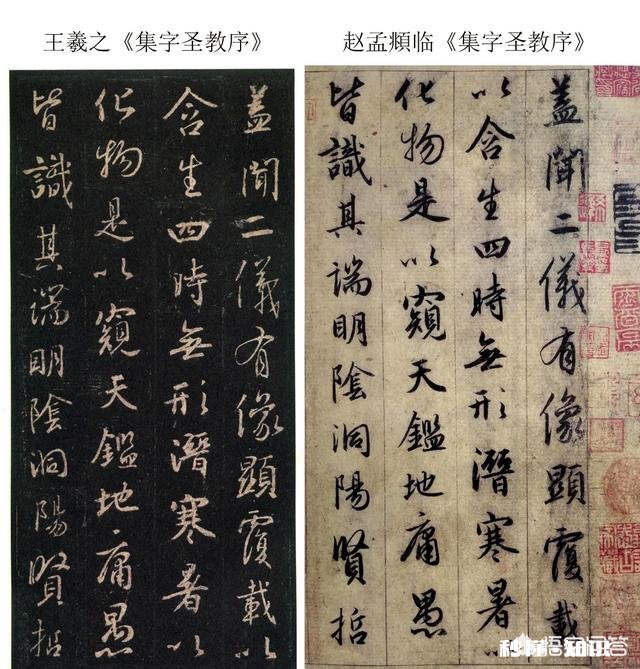 王羲之《集字圣教序》
蓋聞二儀有像顯覆載以
含生四時無形潛寒暑以
化物是以窺天鑑地庸愚
皆識其端明陰洞陽賢哲
赵孟頫临《集字圣教序》
蓋聞二儀有像顯覆載
以含生四時無形潛寒暑
化物是以窺天鑑地庸愚
皆識其端明陰洞陽賢哲
悟空问答